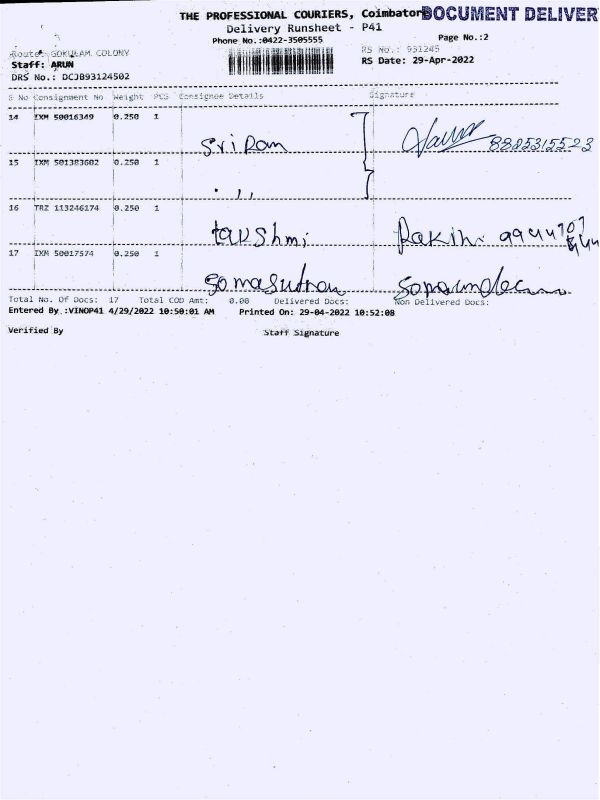 THE PROFESSIONAL COURIERS, Coimbator DOCUMENT DELIVER
Delivery Runsheet - P41
Phone No.:0422-3505555 Page No.:2
Route: GOKULAM COLONY RS No.: 931245
Staff: ARUN RS Date: 29-Apr-2022
DRS No.: DCJB93124502
S No Consignment No Weight PCS Consignee Details Signature
14 IXM 50016349 0.250 1
Sri Ram 8885315523
15 IXM 501383602 0.250 1
. ,,
16 TRZ 113246174 0.250 1
17 IXM 50017574 0.250 1
Total No. Of Docs: 17 Total COD Amt: 0.00 Delivered Docs: Non Delivered Docs:
Entered By :VINOP41 4/29/2022 10:50:01 AM Printed On: 29-04-2022 10:52:08
Verified By Staff Signature